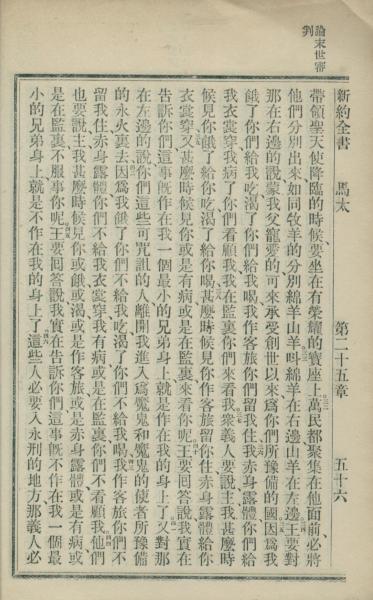 論末世審
判
新約全書　馬太　第二十五章　五十六
帶領聖天使降臨的時候、要坐在有榮耀的寶座上、萬民都聚集在他面前、必將
他們分別出來、如同牧羊的分別綿羊山羊、呌綿羊在右邊、山羊在左邊、王要對
那在右邊的說、蒙我父寵愛的、可來承受創世以來爲你們所豫備的國、因爲我
餓了你們給我吃、渴了你們給我喝、我作客旅你們留我住、我赤身露體你們給
我衣裳穿、我病了你們看顧我、我在監裏你們來看我、衆義人要說、主、我甚麼時
候見你餓了給你吃、渴了給你喝、甚麼時候見你作客旅留你住、赤身露體給你
衣裳穿、又甚麼時候見你或是有病、或是在監裏、來看你呢、王要回答說、我實在
告訴你們、這事旣作在我一個最小的兄弟身上、就是作在我的身上了、又對那
在左邊的說、你們這些可咒詛的人、離開我、進入爲魔鬼和魔鬼的使者所豫備
的永火裏去、因爲我餓了你們不給我吃、渴了你們不給我喝、我作客旅你們不
留我住、赤身露體你們不給我衣裳穿、我有病、或是在監裏、你們不看顧我、他們
也要說、主、我甚麼時候見你或餓、或渴、或是作客旅、或是赤身露體、或是有病、或
是在監裏、不服事你呢、王要回答說、我實在告訴你們、這事旣不作在我一個最
小的兄弟身上、就是不作在我的身上了、這些人必要入永刑的地方、那義人必